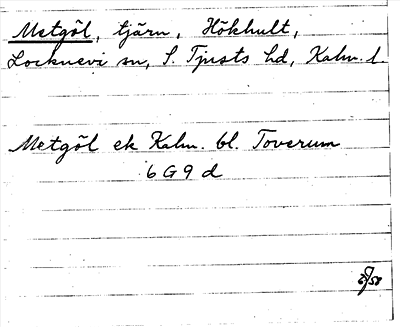 Metgöl, tjärn, Hökhult,
Locknevi sn, S. Tjusts hd, Kalm. l.
Metgöl ek Kalm. bl. Toverum
6 G 9 d